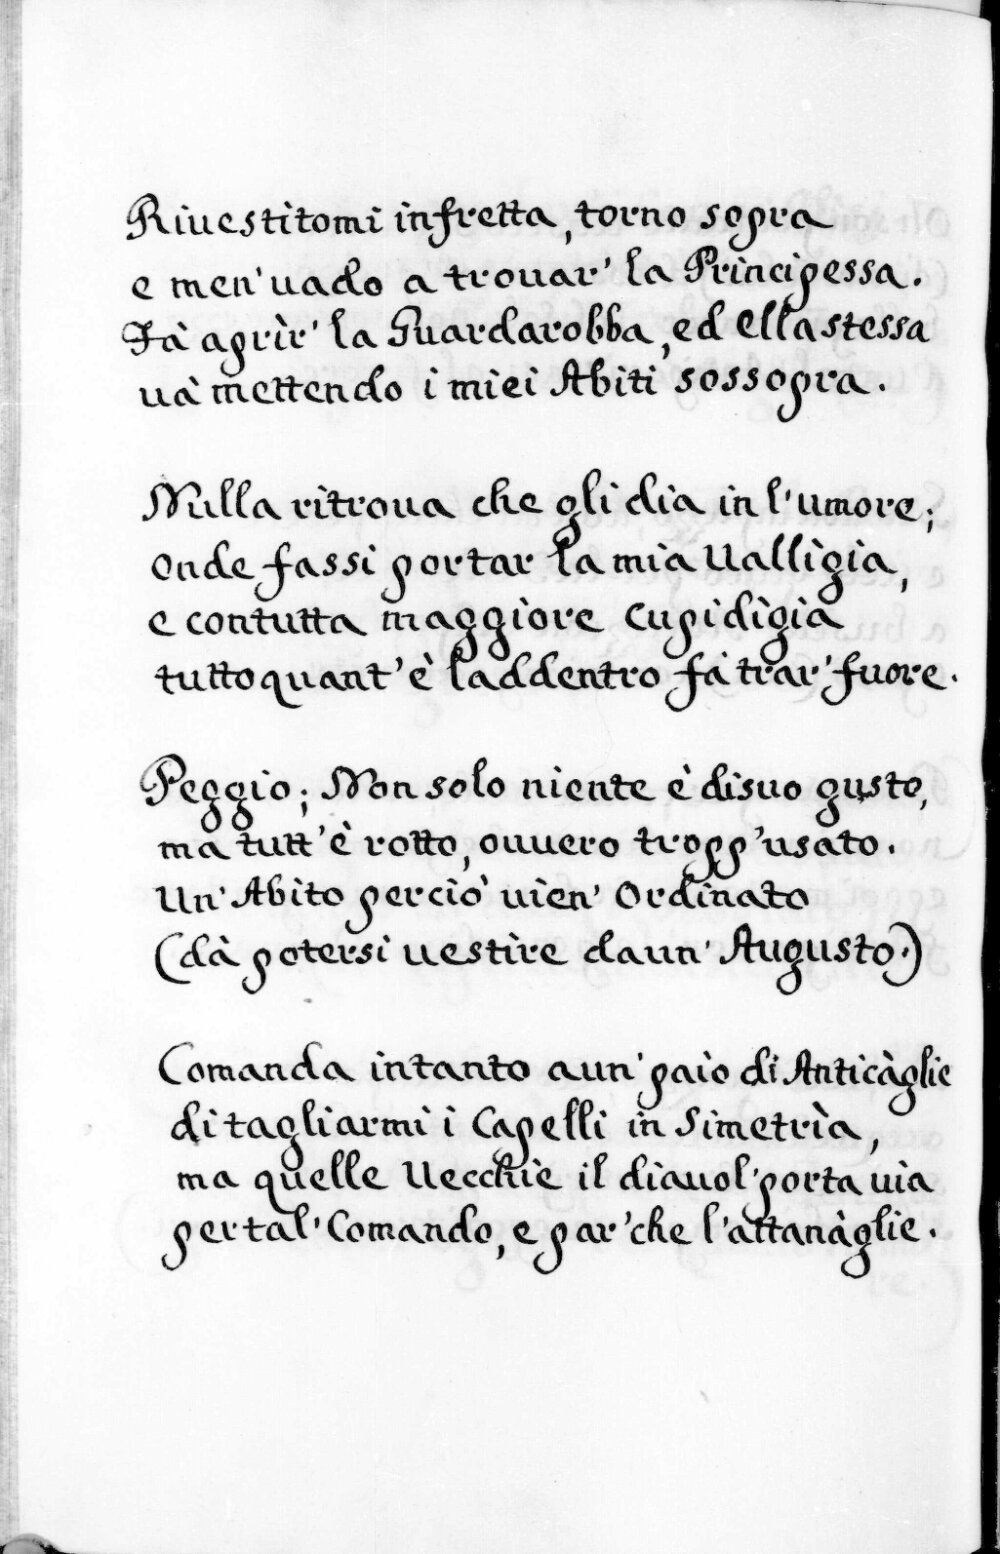 Riuestitomi infretta, torno sopra
e men'uado a trouar' la Principessa.
Fà aprìr' la Guardarobba, ed Ella stessa
uà mettendo i miei Abiti sossopra.
Nulla ritroua che gli dia in l'umore;
onde fassi portar la mia Ualligia,
e contutta maggiore cupidigia
tutto quant'è laddentro fà trar' fuore.
Peggio; Non solo niente è disuo gusto,
ma tutt'è rotto, ouuero tropp'usato.
Un' Abito perciò uien' Ordinato
(dà potersi uestire daun' Augusto.)
Comanda intanto aun' paio di Anticàglie
di tagliarmi i Capelli in Simetrìa,
ma quelle Uecchie il diauol' porta uia
pertal' Comando, e par' che l'attanàglie.